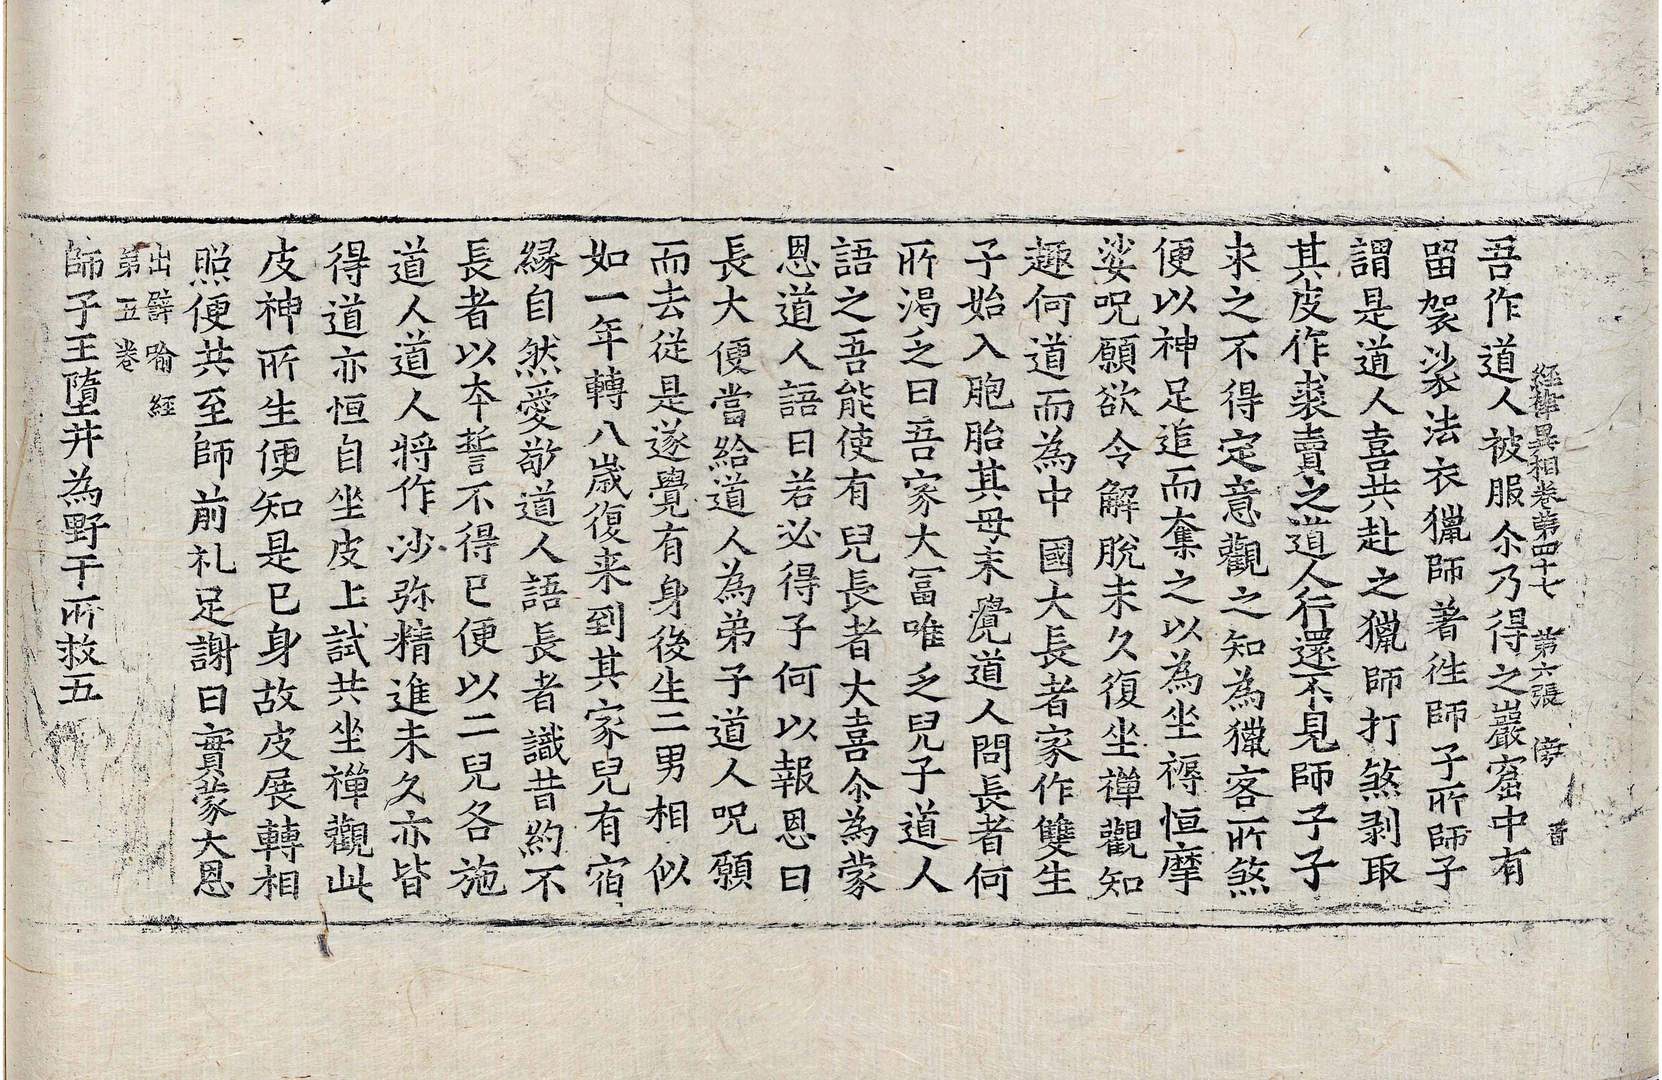 經律異相卷第四十七　第六張　傍　著
吾作道人被服尒乃得之巖窟中有
留袈裟法衣獵師著徃師子所師子
謂是道人喜共赴之獵師打煞剥取
其皮作裘賣之道人行還不見師子子
求之不得定意觀之知為獵客所煞
便以神足追而奪之以為坐褥恒摩
娑呪願欲令解脫未久復坐禪觀知
趣何道而為中國大長者家作雙生
子始入胞胎其母未覺道人問長者何
所渴乏曰吾家大冨唯乏兒子道人
語之吾能使有兒長者大喜尒為蒙
恩道人語曰若必得子何以報恩曰
長大便當給道人為弟子道人呪願
而去從是遂覺有身後生二男相似
如一年轉八歲復来到其家兒有宿
緣自然愛敬道人語長者識昔約不
長者以本誓不得已便以二兒各施
道人道人將作沙弥精進未久亦皆
得道亦恒自坐皮上試共坐禪觀此
皮神所生便知是已身故皮展轉相
照便共至師前礼足謝曰實蒙大恩
出譬喻經
第五卷
師子王墮井為野干所救五